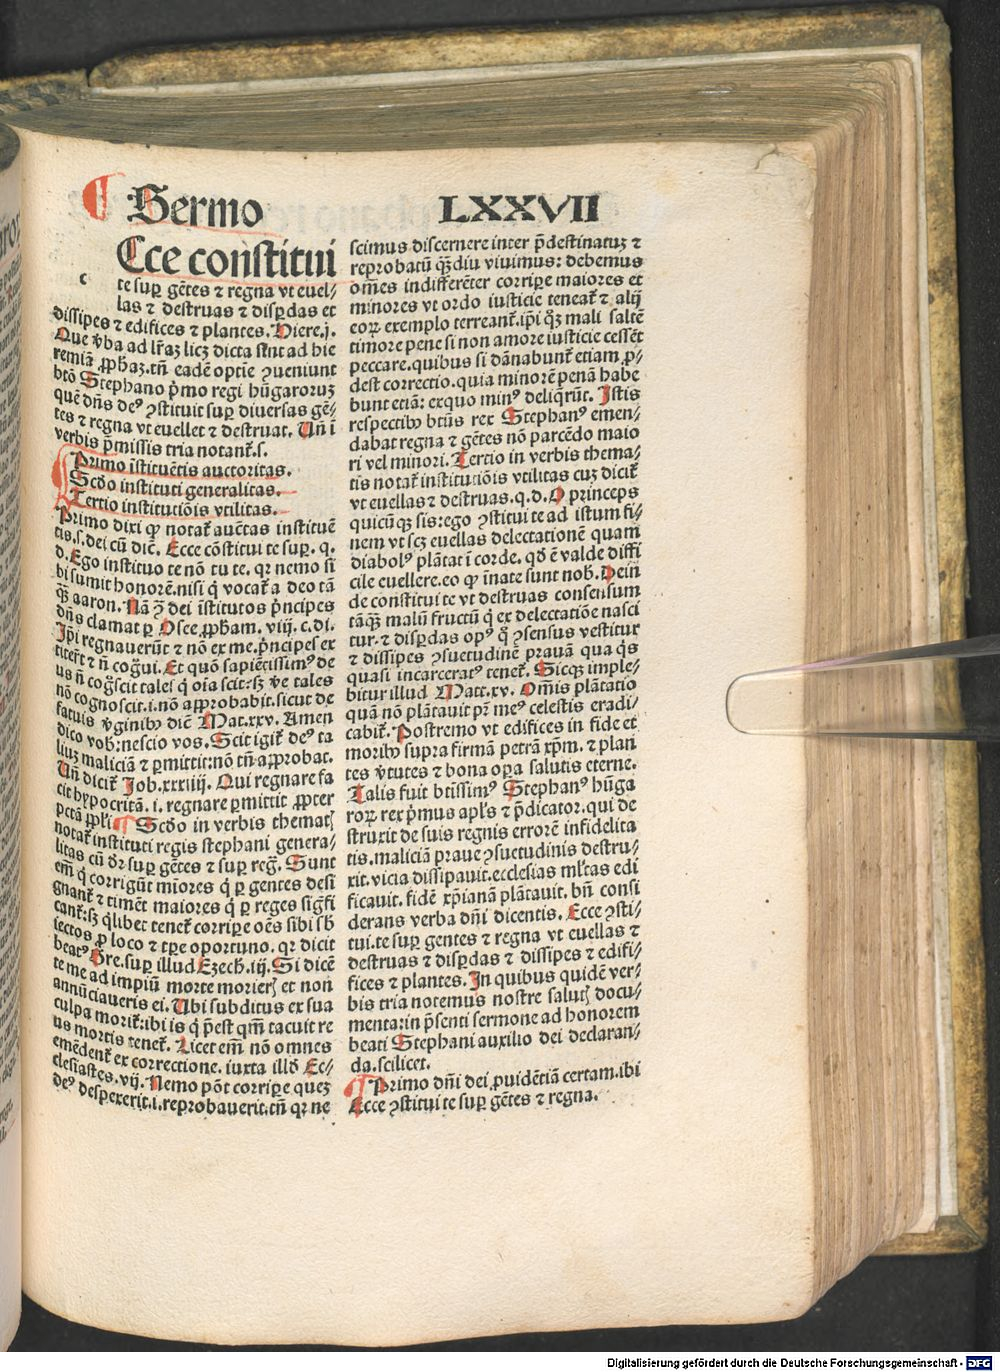 Sermo LXXVII
Ecce constitui
te suꝑ gẽtes ⁊ regna vt euel/
las ⁊ destruas ⁊ disꝑdas et
dissipes ⁊ edifices ⁊ plantes. Hiere.j.
Que ꝟba ad lr̃aʒ licʒ dicta sint ad hie
remiã ꝓphaʒ.tñ eadẽ optĩe ꝯueniunt
btõ Stephano p̃mo regi hũgaroruʒ
quẽ dñs deꝰ ꝯstituit suꝑ diuersas gẽ/
tes ⁊ regna vt euellet ⁊ destruat. Uñ ĩ
verbis p̃missis tria notant̃.s.
Primo ĩstituẽtis auctoritas.
Scḋo instituti generalitas.
Tertio institutiõis vtilitas.
Primo dixi ꝙ notat̃ auc̃tas instituẽ
tis.s.dei cũ diẽ. Ecce cõstitui te suꝑ. q.
d. Ego instituo te nõ tu te. qꝛ nemo si
bi sumit honorẽ.nisi q̇ vocat̃ a deo tã
qʒ aaron. Nã ꝯ̃ dei ĩstitutos p̃ncipes
dñs clamat ꝑ Osee ꝓpham. viij. c. di.
Ip̃i regnauerũt ⁊ nõ ex me.p̃ncipes ex
titer̃t ⁊ ñ cog̃ui. Et quõ sapiẽtissimꝰ de
us ñ cog̃scit tales q̇ oĩa scit:sʒ ꝟe tales
nõ cognoscit.i.nõ approbabit.sicut de
fatuis ꝟginibꝰ diẽ Mat.xxv. Amen
dico vob:nescio vos. Scit igit̃ deꝰ ta
liuʒ maliciã ⁊ ꝑmittit:nõ tñ approbat.
Uñ dicit̃ Job.xxxiiij. Qui regnare fa
cit hypocritã.i. regnare ꝑmittit ꝓpter
pctã ppl̃i Scḋo in verbis themat̃
notat̃ instituti regis stephani genera/
litas cũ dr̃ suꝑ gẽtes ⁊ suꝑ reg̃. Sunt
em̃ q̇ corrigũt mĩores q̇ ꝑ gentes desi
gnant̃ ⁊ timẽt maiores q̇ ꝑ reges sig̃fi
cant̃:sʒ q̇libet tenet̃ corriꝑe oẽs sibi sb̃
iectos ꝓ loco ⁊ tꝑe oportuno. qꝛ dicit
beatꝰ Gre.suꝑ illud Ezech.iij. Si dicẽ
te me ad impiũ morte morier̃ et non
annũciaueris ei. Ubi subditus ex sua
culpa morit̃:ibi is q̇ p̃est qm̃ tacuit re
us mortis tenet̃. Licet em̃ nõ omnes
emẽdent̃ ex correctione. iuxta illḋ Ec/
clesiastes.vij. Nemo põt corriꝑe queʒ
deꝰ despexerit.i.reprobauerit.tñ qꝛ ne
scimus discernere inter p̃destinatuʒ ⁊
reprobatũ qʒdiu viuimus: debemus
om̃es indifferẽter corriꝑe maiores et
minores vt ordo iusticie teneat̃ ⁊ alij
eoꝝ exemplo terreant̃.ip̃i q̃ʒ mali saltẽ
timore pene si non amore iusticie cessẽt
peccare.quibus si dãnabunt̃ etiam ꝓ/
dest correctio.quia minorẽ penã habe
bunt etiã: exquo minꝰ deliq̃rũt. Istis
respectibꝰ btũs rex Stephanꝰ emen/
dabat regna ⁊ gẽtes nõ parcẽdo maio
ri vel minori. Tertio in verbis thema/
tis notat̃ institutiõis vtilitas cuʒ dicit̃
vt euellas ⁊ destruas.q.d. O princeps
quicũqʒ sis:ego ꝯstitui te ad istum fi/
nem vt scʒ euellas delectationẽ quam
diabolꝰ plãtat ĩ corde. qḋ ẽ valde diffi
cile euellere.eo ꝙ ĩnate sunt nob̃. Deiñ
de constitui te vt destruas consensum
tãqʒ malũ fructũ q̇ ex delectatiõe nasci
tur. ⁊ disꝑdas opꝰ q̇ ꝯsensus vestitur
⁊ dissipes ꝯsuetudinẽ prauã qua q̇s
quasi incarceratꝰ tenet̃. Sicqʒ imple/
bitur illud Matt.xv. Om̃is plãtatio
quã nõ plãtauit pr̃ meꝰ celestis eradi/
cabit̃. Postremo vt edifices in fide et
moribꝰ supra firmã petrã xp̃m. ⁊ plañ
tes ꝟtutes ⁊ bona oꝑa salutis eterne.
Talis fuit btĩssimꝰ Stephanꝰ hũga
roꝝ rex p̃mus apl̃s ⁊ p̃dicator.qui de
struxit de suis regnis errorẽ infidelita
tis.maliciã praue ꝯsuetudinis destru/
xit.vicia dissipauit.ecclesias ml̃tas edi
ficauit. fidẽ xp̃ianã plãtauit. bñ consi
derans verba dñi dicentis. Ecce ꝯsti/
tui.te suꝑ gentes ⁊ regna vt euellas ⁊
destruas ⁊ disꝑdas ⁊ dissipes ⁊ edifi/
fices ⁊ plantes. In quibus quidẽ ver/
bis tria notemus nostre salut̃ docu/
menta:in p̃senti sermone ad honorem
beati Stephani auxilio dei declaran/
da.scilicet.
Primo dñi dei ꝓuidẽtiã certam.ibi
Ecce ꝯstitui te suꝑ gẽtes ⁊ regna.
Digitalisierung gefördert durch die Deutsche Forschungsgemeinschaft - DFG